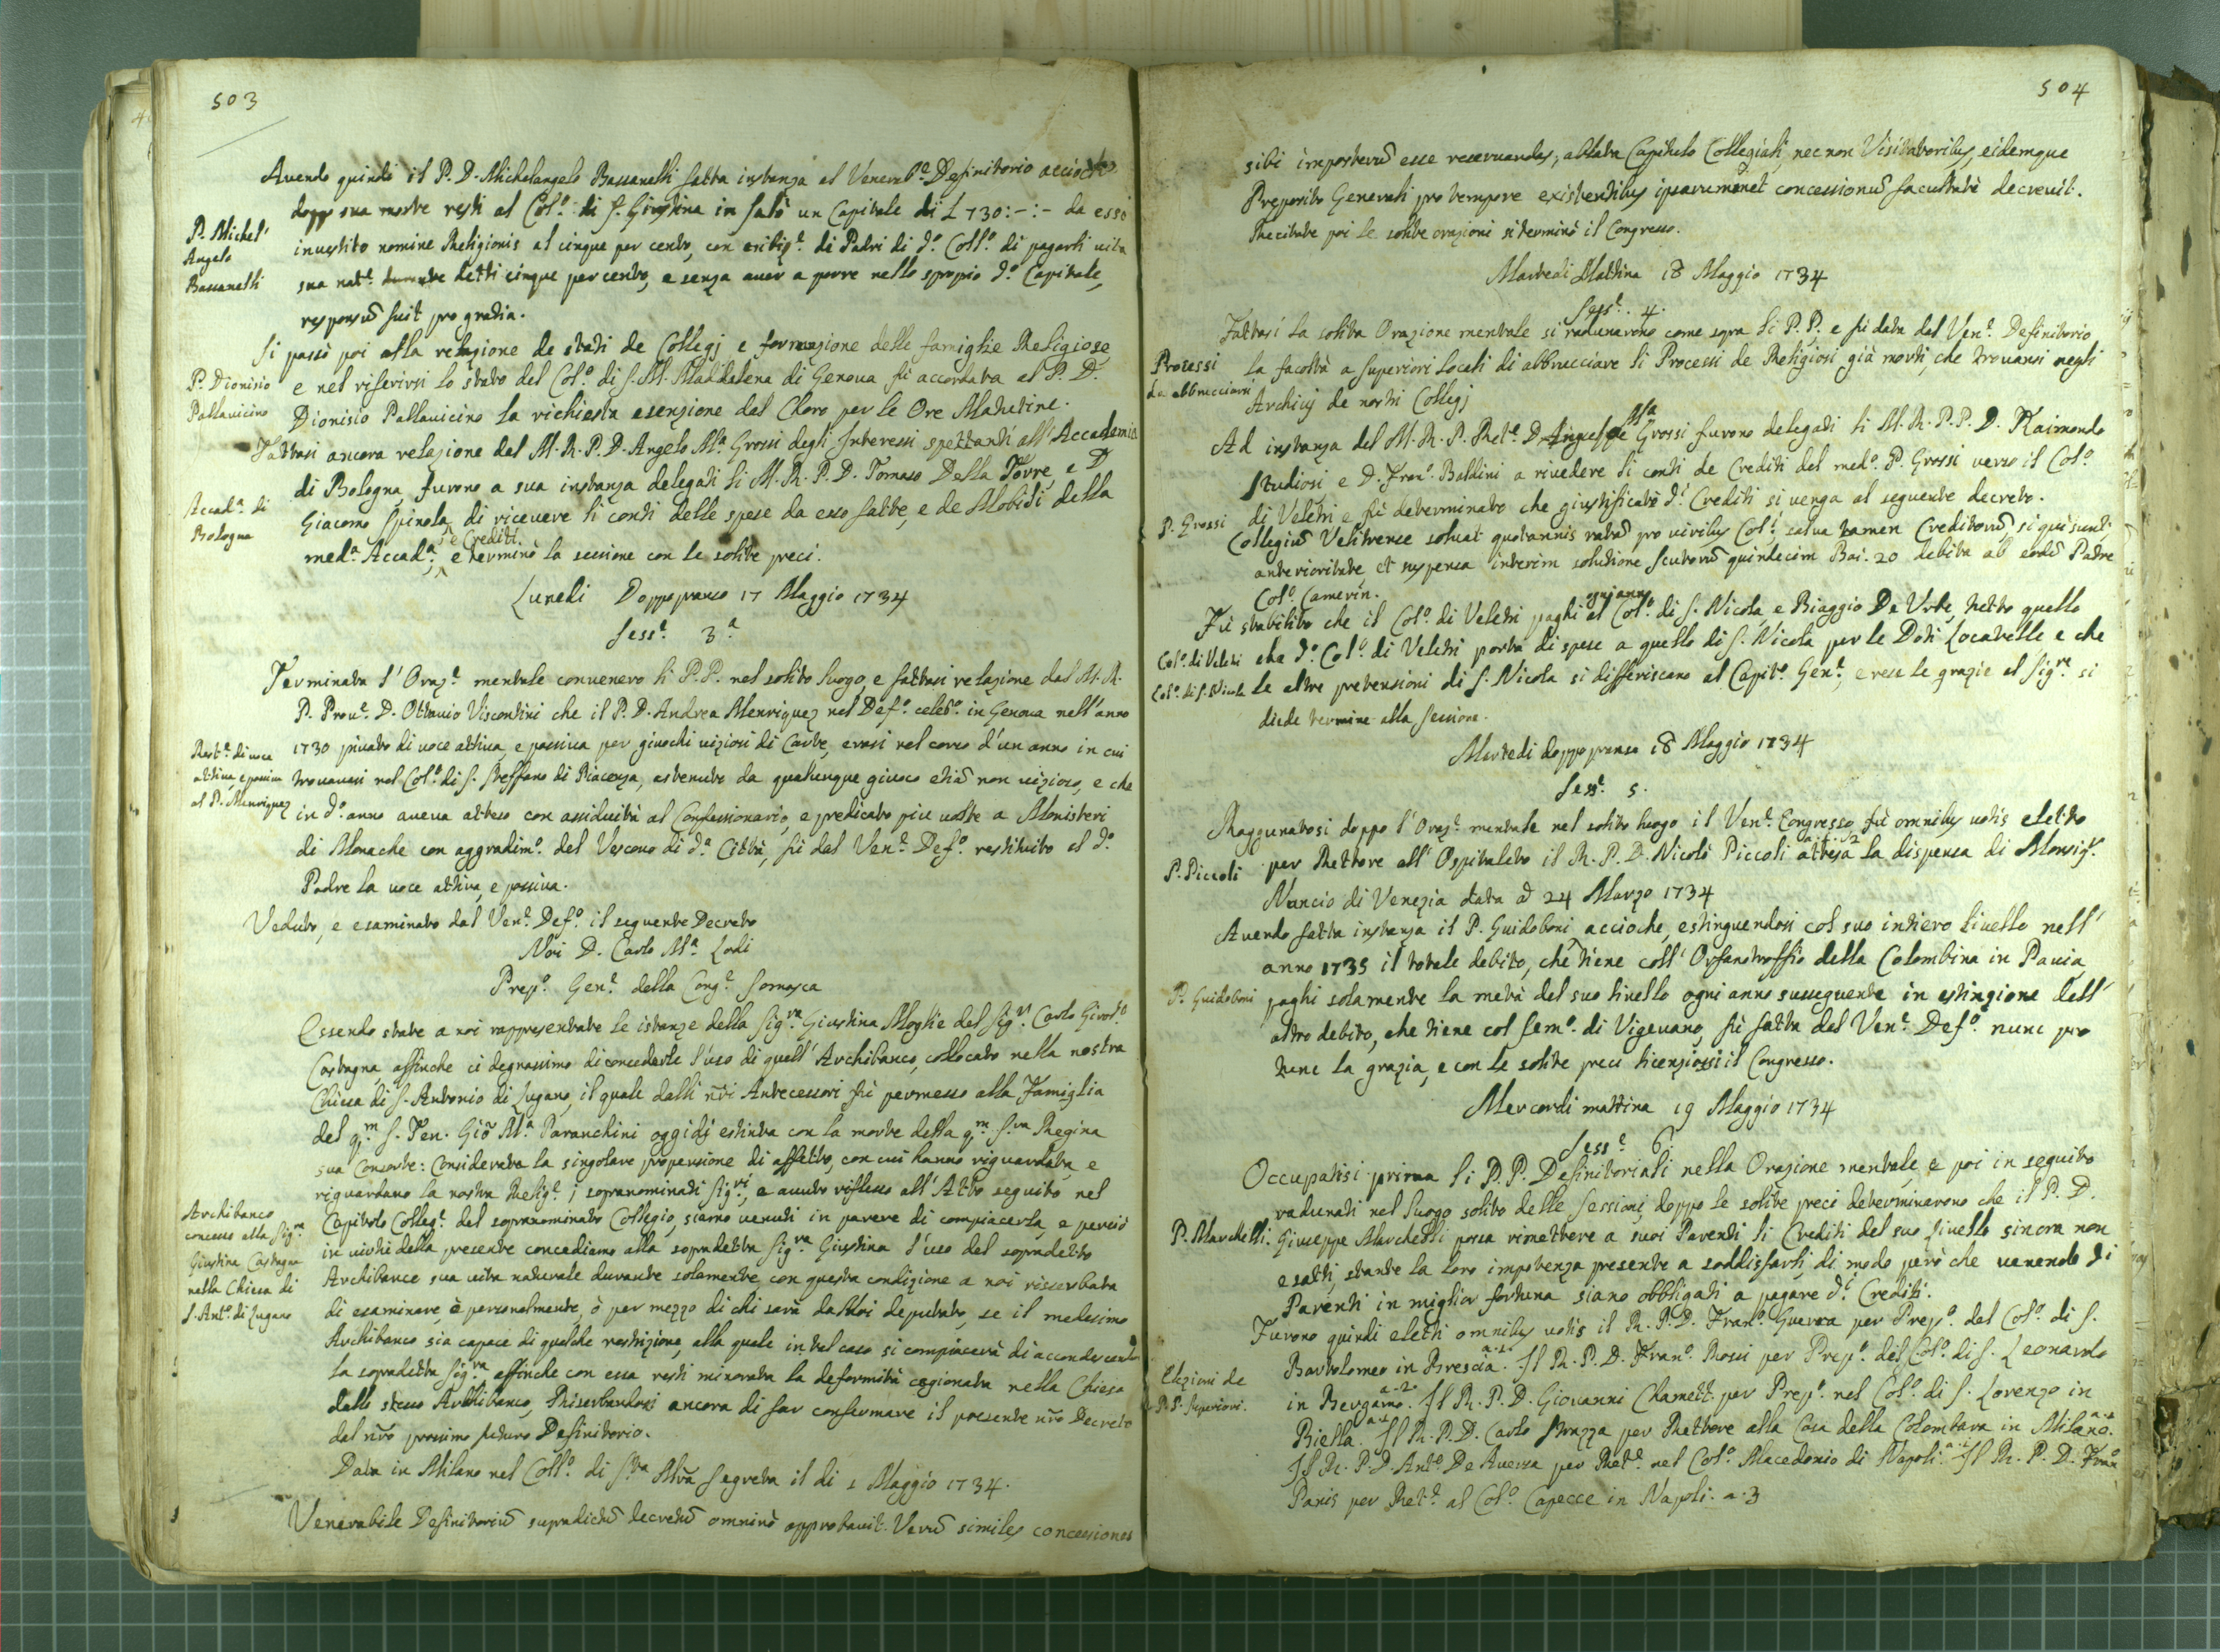 503
Avendo quindi il P. D. Michelangelo Bassanelli fatta instanza al Venerab.e Definitorio acciochè
doppo sua morte resti al Col.o di S. Giustina in Salò un Capitale di L 730:-:- da esso
P. Michel'
Angelo
Bassanelli
investito nomine Religionis al cinque per cento, con di Padri di d.o Coll.o di pagarli vita
sua nat.e detti cinque per cento, e senza aver a porre nello spropio d.o Capitale,
responsũ fuit pro gratia.
Si passò poi alla relazione de stati de Collegj e formazione delle famiglie Religiose
P. Dionisio
Pallavicino
e nel riferirsi lo stato del Col.o di S. M. Maddalena di Genova fù accordata al P. D.
Dionisio Pallavicino la richiesta esenzione dal Choro per le Ore Matutine.
Fattasi ancora relazione dal M. R. P. D. Angelo M.a Grossi degli Interessi spettanti all'Accademia
Accad.a di
Bologna
di Bologna, furono a sua instanza delegati li M. R. P. D. Tomaso Della Torre, e D
Giacomo Spinola di ricevere li conti delle spese da esso fatte, e de Mobili della
med.a Accad.a, e Crediti e terminò la sessione con le solite preci.
Lunedi Doppopranso 17 Maggio 1734
Sess.e 3.a
Terminata l'Oraz.e mentale convenero li P.P. nel solito luogo, e fattasi relazione dal M. R.
P. Prov.e D. Ottavio Viscontini che il P. D. Andrea Menriquez nel Def.o celeb.o in Genova nell'anno
Rest.e di voce
attiva, e passiva
al P. Menriquez
1730 privato di voce attiva, e passiva per giuochi viziosi di Carte, erasi nel corso d'un anno in cui
trovavasi nel Col.o di S. Steffano di Piacenza, astenuto da qualunque giuoco etiã non vizioso, e che
in d.o anno aveva atteso con assiduità al Confessionario, e predicato più volte a Monisteri
di Monache con aggradim.o del Vescovo di d.a Città, fù dal Ven.e Def.o restituito al d.o
Padre la voce attiva, e passiva.
Veduto, e esaminato dal Ven.e Def.o il seguente Decreto
Noi D. Carlo M.a Lodi
Prep.o Gen.e della Cong.e Somasca
Essendo state a noi rappresentate le istanze della Sig.ra Giustina Moglie del Sig.r Carlo Girol.o
Castagna, affinche ci degnassimo di concederle l'uso di quell'Archibanco, collocato nella nostra
Chiesa di S. Antonio di Lugano, il quale dalli nr̃i Antecessori fù permesso alla Famiglia
del q.m S. Ten. Giõ M.a Paranchini oggidì estinta con la morte della q.m S.ra Regina
sua Consorte: Considerata la singolare propensione di affetto, con cui hanno riguardata, e
riguardano la nostra Relig.e i sopranominati Sig.ri, e avuto riflesso all'Atto seguito nel
Archibanco
concesso alla Sig.ra
Giustina Castagna
nella Chiesa di
S. Ant.o di Lugano
Capitolo Colleg.e del sopranominato Collegio, siamo venuti in parere di compiacerla, e perciò
in virtù della presente concediamo alla sopradetta Sig.ra Giustina l'uso del sopradetto
Archibanco sua vita naturale durante solamente con questa condizione a noi risserbata
di esaminare, ò personalmente, ò per mezzo di chi sarà da Noi deputato, se il medesimo
Archibanco sia capace di qualche restrizione, alla quale in tal caso si compiacerà di accondescendere
la sopradetta Sig.ra, affinche con essa resti minorata la deformità cagionata nella Chiesa
dallo stesso Archibanco, Riserbandosi ancora di far confermare il presente nr̃o Decreto
dal nr̃o prossimo futuro Definitorio.
Data in Milano nel Coll.o di S.ta Mr̃ia Segreta il di 1 Maggio 1734.
Venerabile Definitoriũ supradictũ decretũ omninò approbavit. Verũ similes concessiones
504
sibi imposterũ esse reservandas, ablata Capitulo Collegiali, nec non Visitatoribus, eidemque
Preposito Generali pro tempore existentibus ipsarummet concessionũ facultatẽ decrevit.
Recitate poi le solite orazioni si terminò il Congresso.
Martedi Mattina 18 Maggio 1734
Sess.e 4.
Fattasi la solita Orazione mentale si radunarono come sopra li P. P. e fù data dal Ven.e Definitorio
Processi
da abbrucciarsi
la facoltà a Superiori Locali di abbrucciare li Processi de Religiosi già morti, che trovansi negli
Archivj de nostri Collegj
Ad instanza del M. R. P. Ret.e D. M.a Grossi furono delegati li M. R. P. P. D. Raimondo
Studiosi e D. Fran.o Baldini a rivedere li conti de Crediti del med.o P. Grossi verso il Col.o
P. Grossi
di Veletri e fù determinato che giustificati d.i Crediti si venga al seguente decreto.
Collegiũ Veliternese solvat quotannis ratã pro viribus Col.i, salva tamen Creditorũ, si qui sunt,
anterioritate, et suspensa interim solutione scutorũ quindecim Bai. 20 debita ab eodẽ Padre
Col.o Camerin.
Fù stabilito che il Col.o di Veletri paghi ogni anno al Col.o di S. Nicola, e Biaggio De Urbe, netto quello
Col.o di Veletri
Col.o di S. Nicola
che d.o Col.o di Veletri porta di spese a quello di S. Nicola per le Doti Locatelle e che
le altre pretensioni di S. Nicola si differiscano al Capit.o Gen.e, e rese le grazie al Sig.re si
diede termine alla Sessione.
Martedi doppo pranso 18 Maggio 1734
Sess.e 5.
Raggunatosi doppo l'Oraz.e mentale nel solito luogo il Ven.e Congresso fù omnibus votis eletto
P. Piccoli
per Rettore all'Ospitaletto il R. P. D. Nicolò Piccoli attesa la dispensa di Monsig.r
Nuncio di Venezia data ad 24 Marzo 1734
Avendo fatta instanza il P. Guidoboni accioche, estinguendosi col suo intiero livello nell'
anno 1735 il totale debito, che tiene coll'Orfanotroffio della Colombina in Pavia,
P. Guidoboni
paghi solamente la metà del suo livello ogni anno susseguente in estinzione dell'
altro debito, che tiene col Sem.o di Vigevano, fù fatta dal Ven.e Def.o nunc pro
tunc la grazia, e con le solite preci licenziossi il Congresso.
Mercordi mattina 19 Maggio 1734
Sess.e 6.
Occupatisi prima li P. P. Definitoriali nella Orazione mentale, e poi in seguito
radunati nel luogo solito delle Sessioni, doppo le solite preci determinarono che il P. D.
P. Marchelli.
Giuseppe Marchelli possa rimettere a suoi Parenti li Crediti del suo livello sinora non
esatti, stante la loro impotenza presente a soddisfarli, di modo però che venendo di
Parenti in miglior fortuna siano obbligati a pagare d.i Crediti.
Furono quindi eletti omnibus votis il R. P. D. Fran.o Guerra per Prep.o dal Col.o di S.
Elezioni de
P. P. Superiori.
Bartolomeo in Brescia. a.1. Il R. P. D. Fran.o Rossi per Prep.o del Col.o di S. Leonardo
in Bergamo. a.2. Il R. P. D. Giovanni Chamett per Prep.o nel Col.o di S. Lorenzo in
Biella. a.1 Il R. P. D. Carlo Strazza per Rettore alla Casa della Colombara in Milano. a.2
Il R. P. D. Ant.o De Aversa per Ret.e nel Col.o Macedonio di Napoli. Il R. P. D. Fran.o
Paris per Ret.e al Col.o Capecce in Napoli. a.3